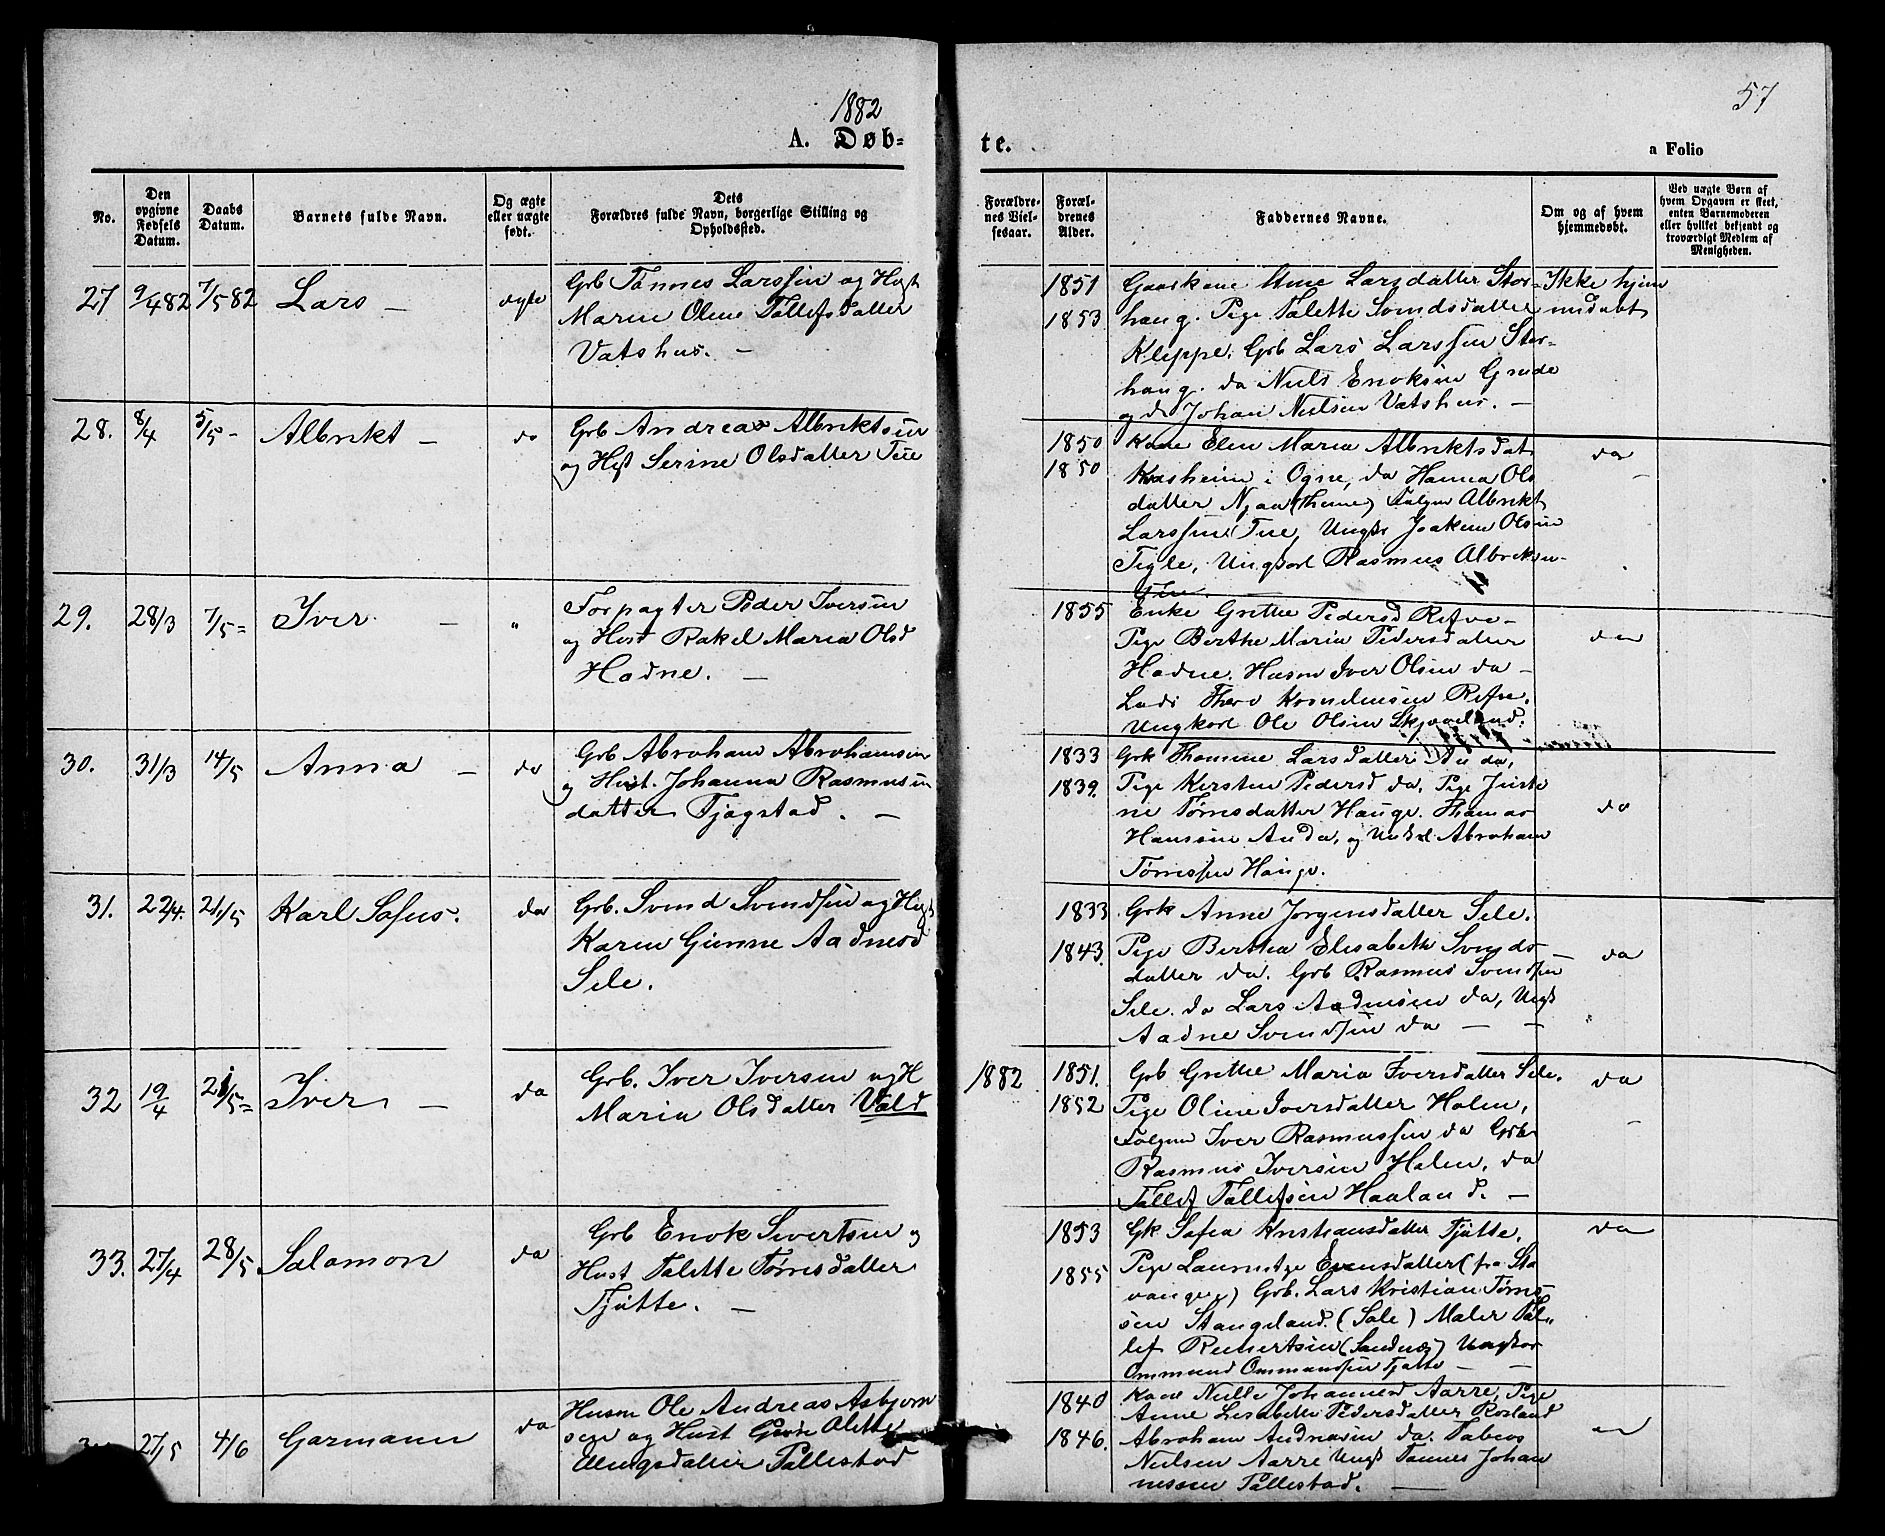 1882
57
A. Døb-
te.
a Folio
No.
Den opgivne Fødsels Datum.
Daabs Datum.
Barnets fulde Navn.
Og ægte eller uægte født.
Dets Forældres fulde Navn, borgerlige Stilling og Opholdssted.
Forældrenes Vielsesaar.
Forældrenes Alder.
Faddernes Navne.
Om og af hvem hjemmedøbt.
Ved uægte Børn af hvem Opgaven er skeet, enten Barnemoderen eller hvilket bekjendt og troværdigt Medlem af Menigheden.
27 9/4 82 7/5 82 Lars — ægte
Grb Tønnes Larssen og Hust
Maren Oline Tollefsdatter
Vatshus. —
1851
1853
Gaardkone Ane Larsdatter Stor-
haug. Pige Talette Svendsdatter
Kleppe, Grb Lars Larssen Stor-
haug. do Niels Enoksen Grude
og do Johan Nielsen Vatshus. —
Ikke hjem
medøbt
28. 8/4 5/5 - Albrikt — do
Grb Andreas Albriktsen
og Hust Serine Olsdatter Tue
1850
1850
Kone Elen Maria Albriktsdat
i Ogne, do Hanna Ols
datter Njaa (Thime) Albrikt
Larssen Tue, Ungk Joakim Olsen
Tigle, Ungkarl Rasmus Albriktsen
do
29. 28/3 7/5 = Iver — "
Forpagter Peder Iversen
og Hust Rakel Maria Olsd
Hodne. —
1855
Enke Grethe Pedersd Refve —
Pige Berthe Maria Pedersdatter
Hodne. Husm Iver Olsen do —
Refve.
Ungkarl Ole Olsen Skjæveland.
do
30. 31/3 14/5 Anna — do
Grb Abraham Abrahamsen
og Hust. Johanna Rasmus
datter Tjøgstad. —
1833
1839.
Grk Thomine Larsdatter Auda,
Pige Kirsten Pedersd do, Pige
ne Tørresdatter Hauge. Thomas
Hansen Auda, og Abraham
Tørressen Hauge.
do
31. 22/4. 21/5 Karl Sofus. do
Grb. Svend Svendsen og Hust
Karen Gunne Aadnesd
Sele.
1833
1843.
Grk Anne Jørgensdatter Sele.
Pige Berthea Elisabeth Svends
datter do. Grb Rasmus Svendsen
Sele. do Lars Aadnesen do, Ungk
Aadne Svendsen do — —
do
32 19/4 21/5 = Iver — do
Grb. Iver Iversen og H
Maria Olsdatter Vold
1882
1851.
1852
Grb Grethe Maria Iversdatter Sele.
Pige Oline Iversdatter Holen,
Iver Rasmussen do Grb
Rasmus Iversen Holen, do
Tollef Tollefsen Haaland. —
do
—
33. 27/4 28/5 Salomon do
Grb Enok Sivertsen og
Hust Talette Tørresdatter
Tjøtte. —
1853
1855
Gk Sofia Kristiansdatter Tjøtte.
Pige Evensdatter (fra Sta
vanger) Grb. Lars Kristian Tørres
sen Stangeland. (Sole) Maler Tol-
lef Reinertsen (Sandnæs) Ungkar
Ommund Ommundsen Tjøtte — —
do
27/5 4/6 Garmann do
Husm Ole Andreas Asbjørn
sen og Hust Olette
Ellingsdatter Tollestad
1840
1846.
Kone Nille Johannesd Aarre, Pige
Anne Lisabette Pedersdatter Rosland
Abraham Andreasen do. Tobias
Nielsen Aarre Ungk Tønnes Johan
nessen Tollestad. —